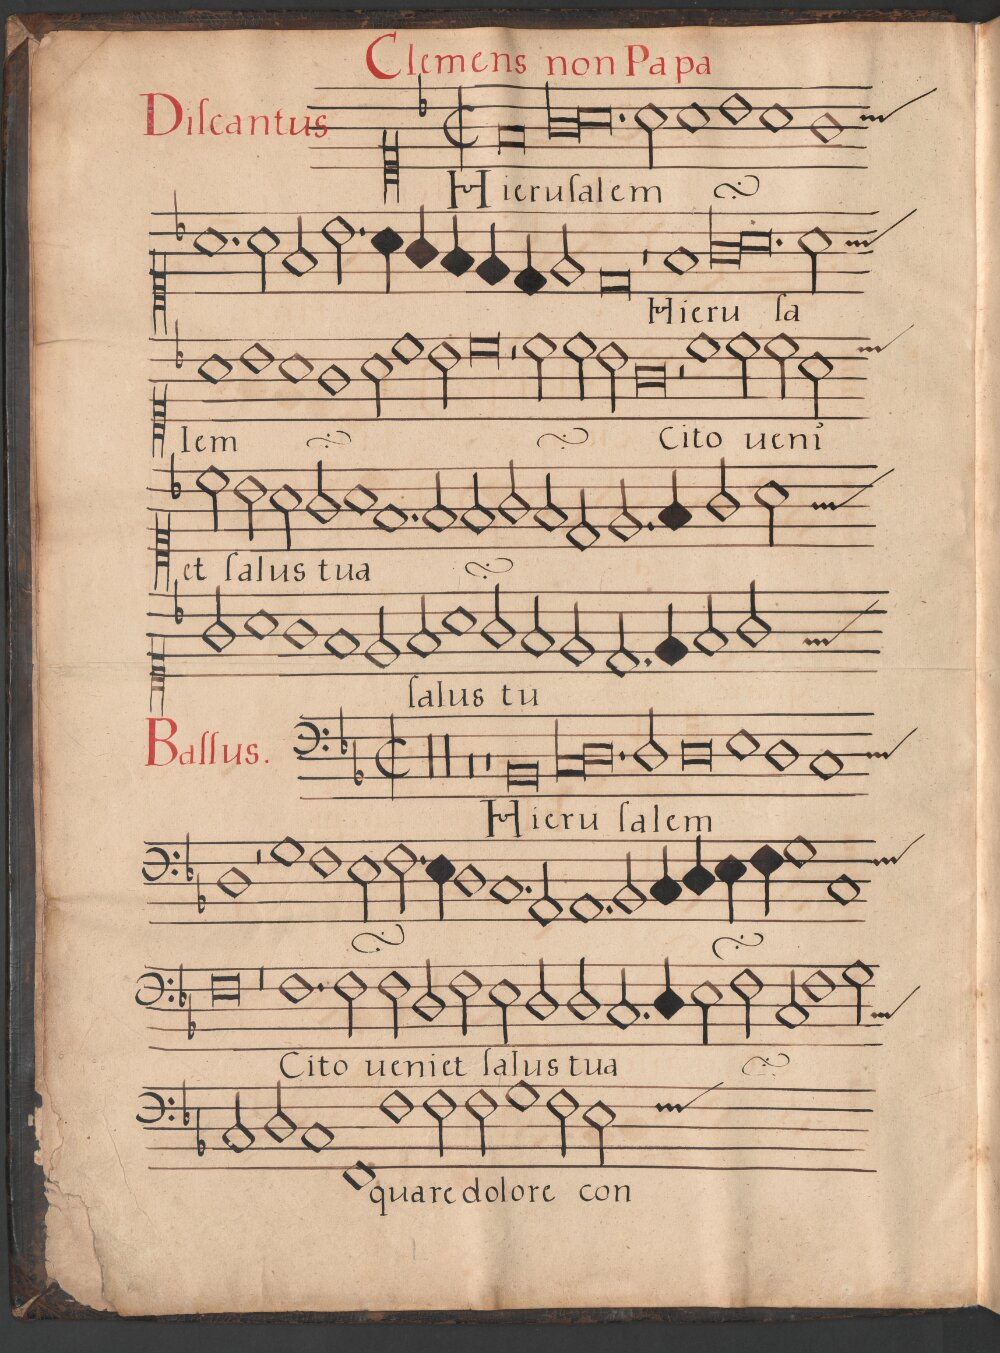 Clemens non Papa
Diſcantus
Hieruſalem
Hieru ſa
lem Cito ueni
et ſalus tua
ſalus tu
Baſſus.
Hieru ſalem
Cito ueniet ſalus tua
quare dolore con